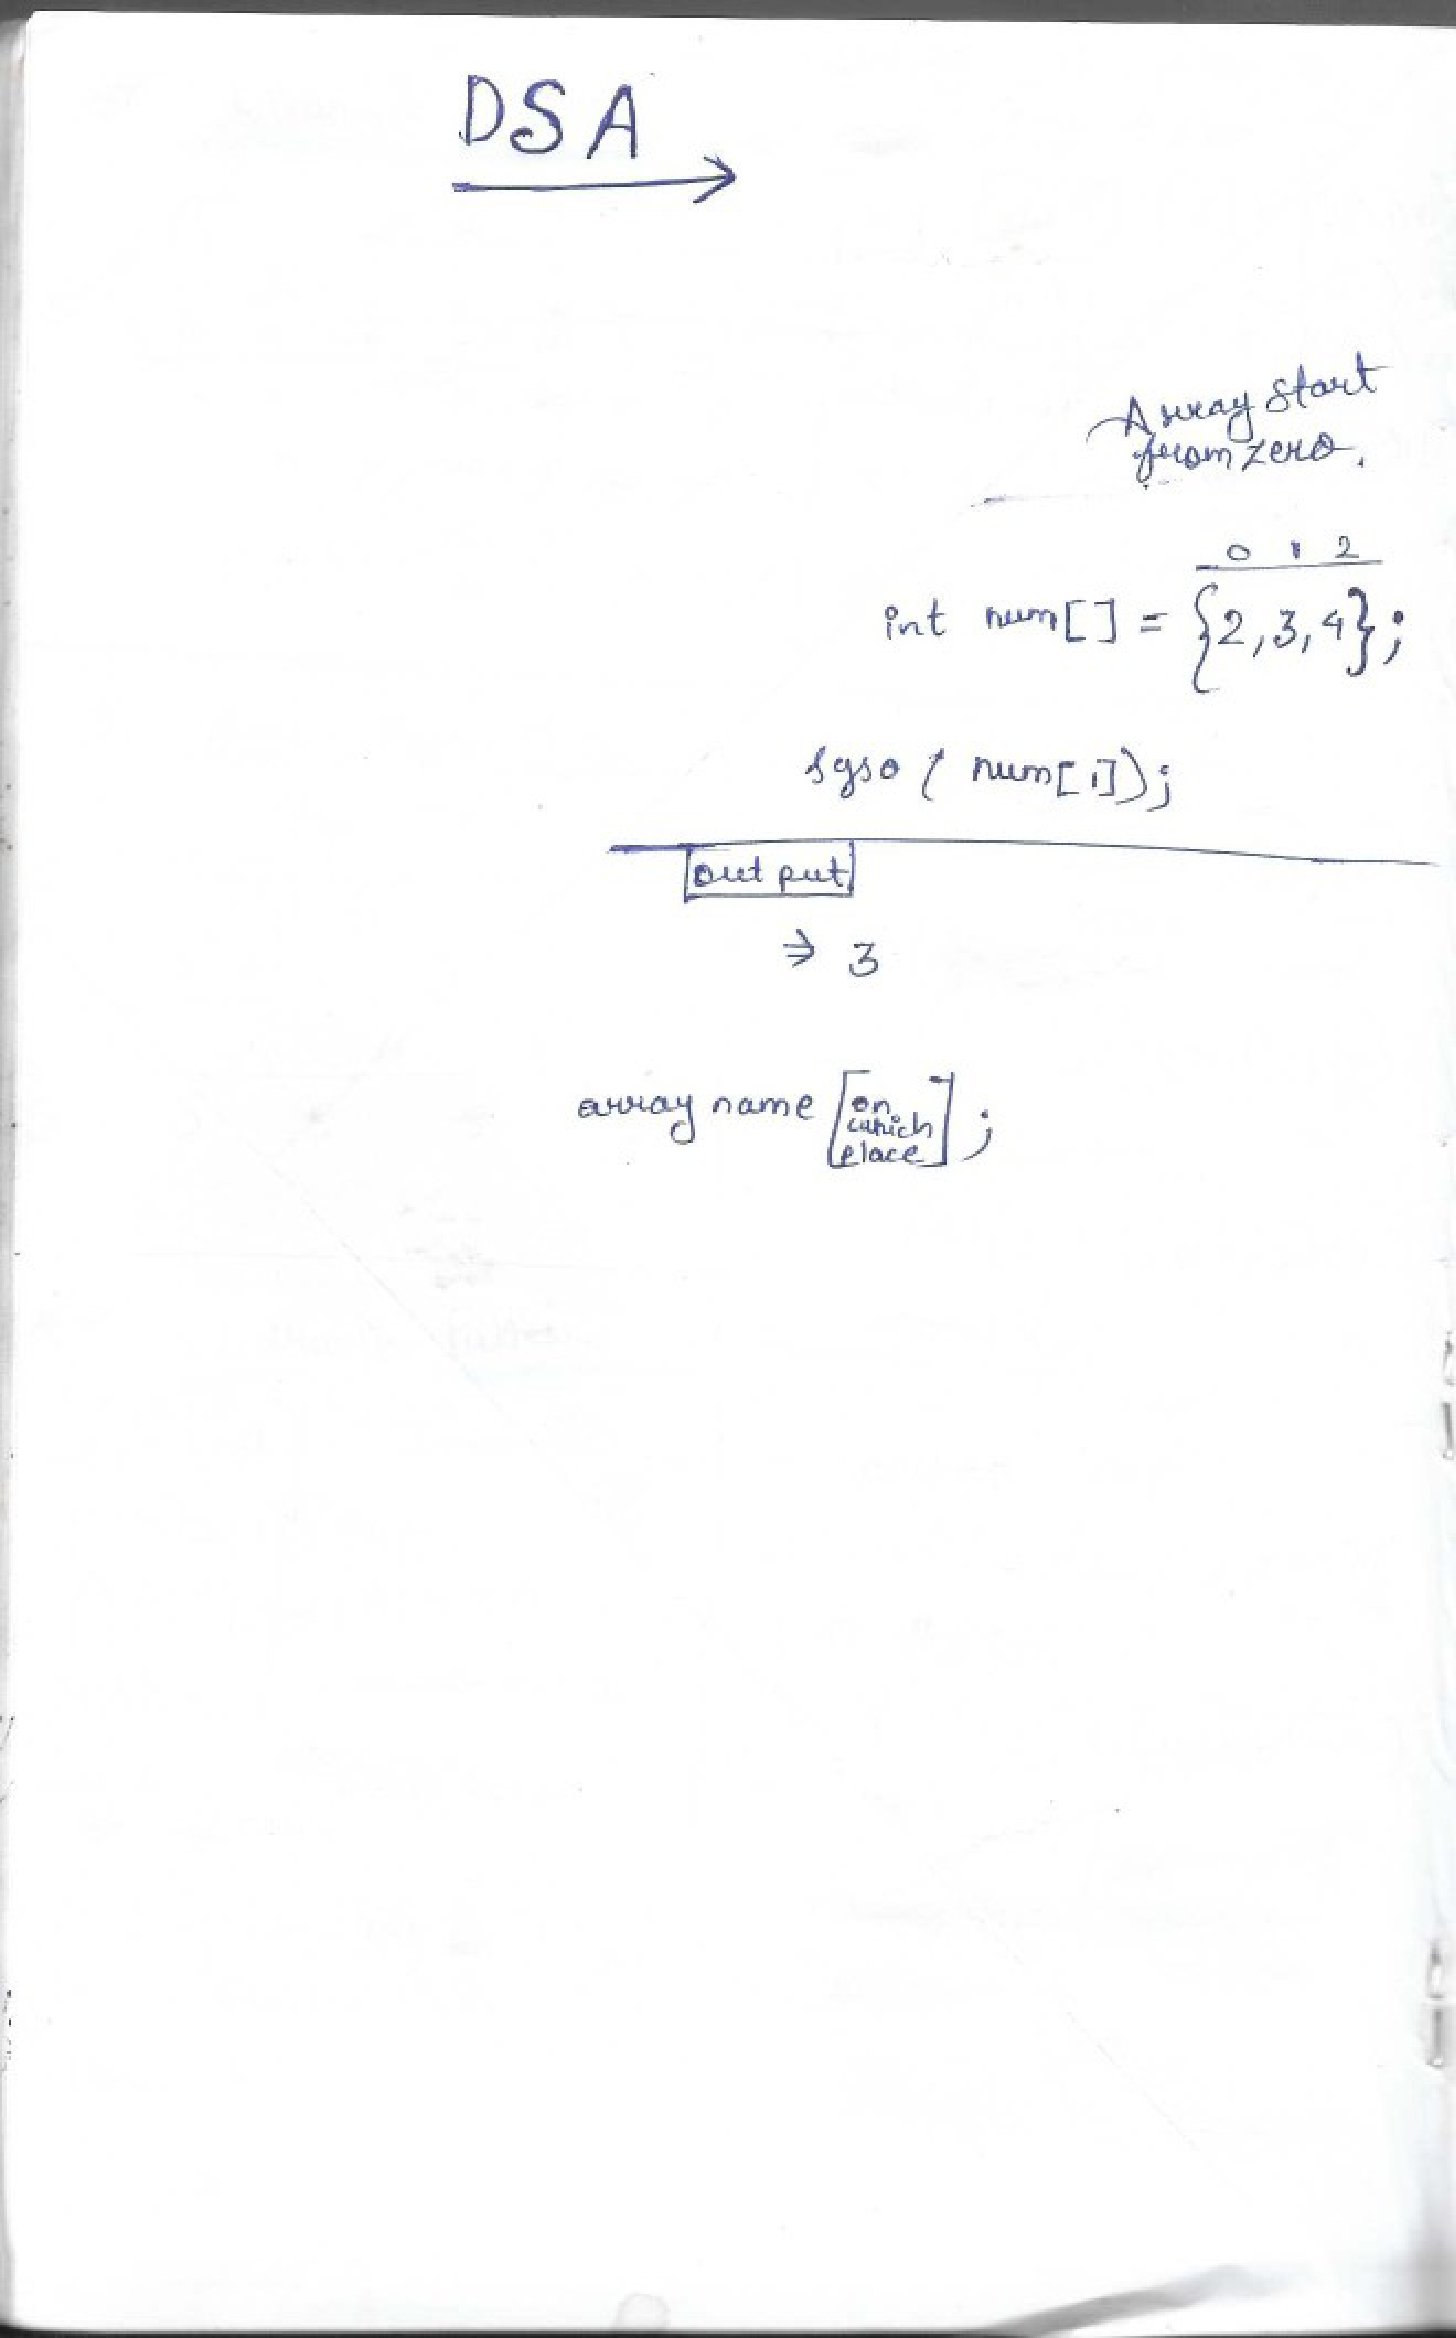 DSA
Array start
from zero.
0 1 2
int num[] = {2,3,4};
syso ( num[1]);
out put
⇒ 3
array name [on
which
place];